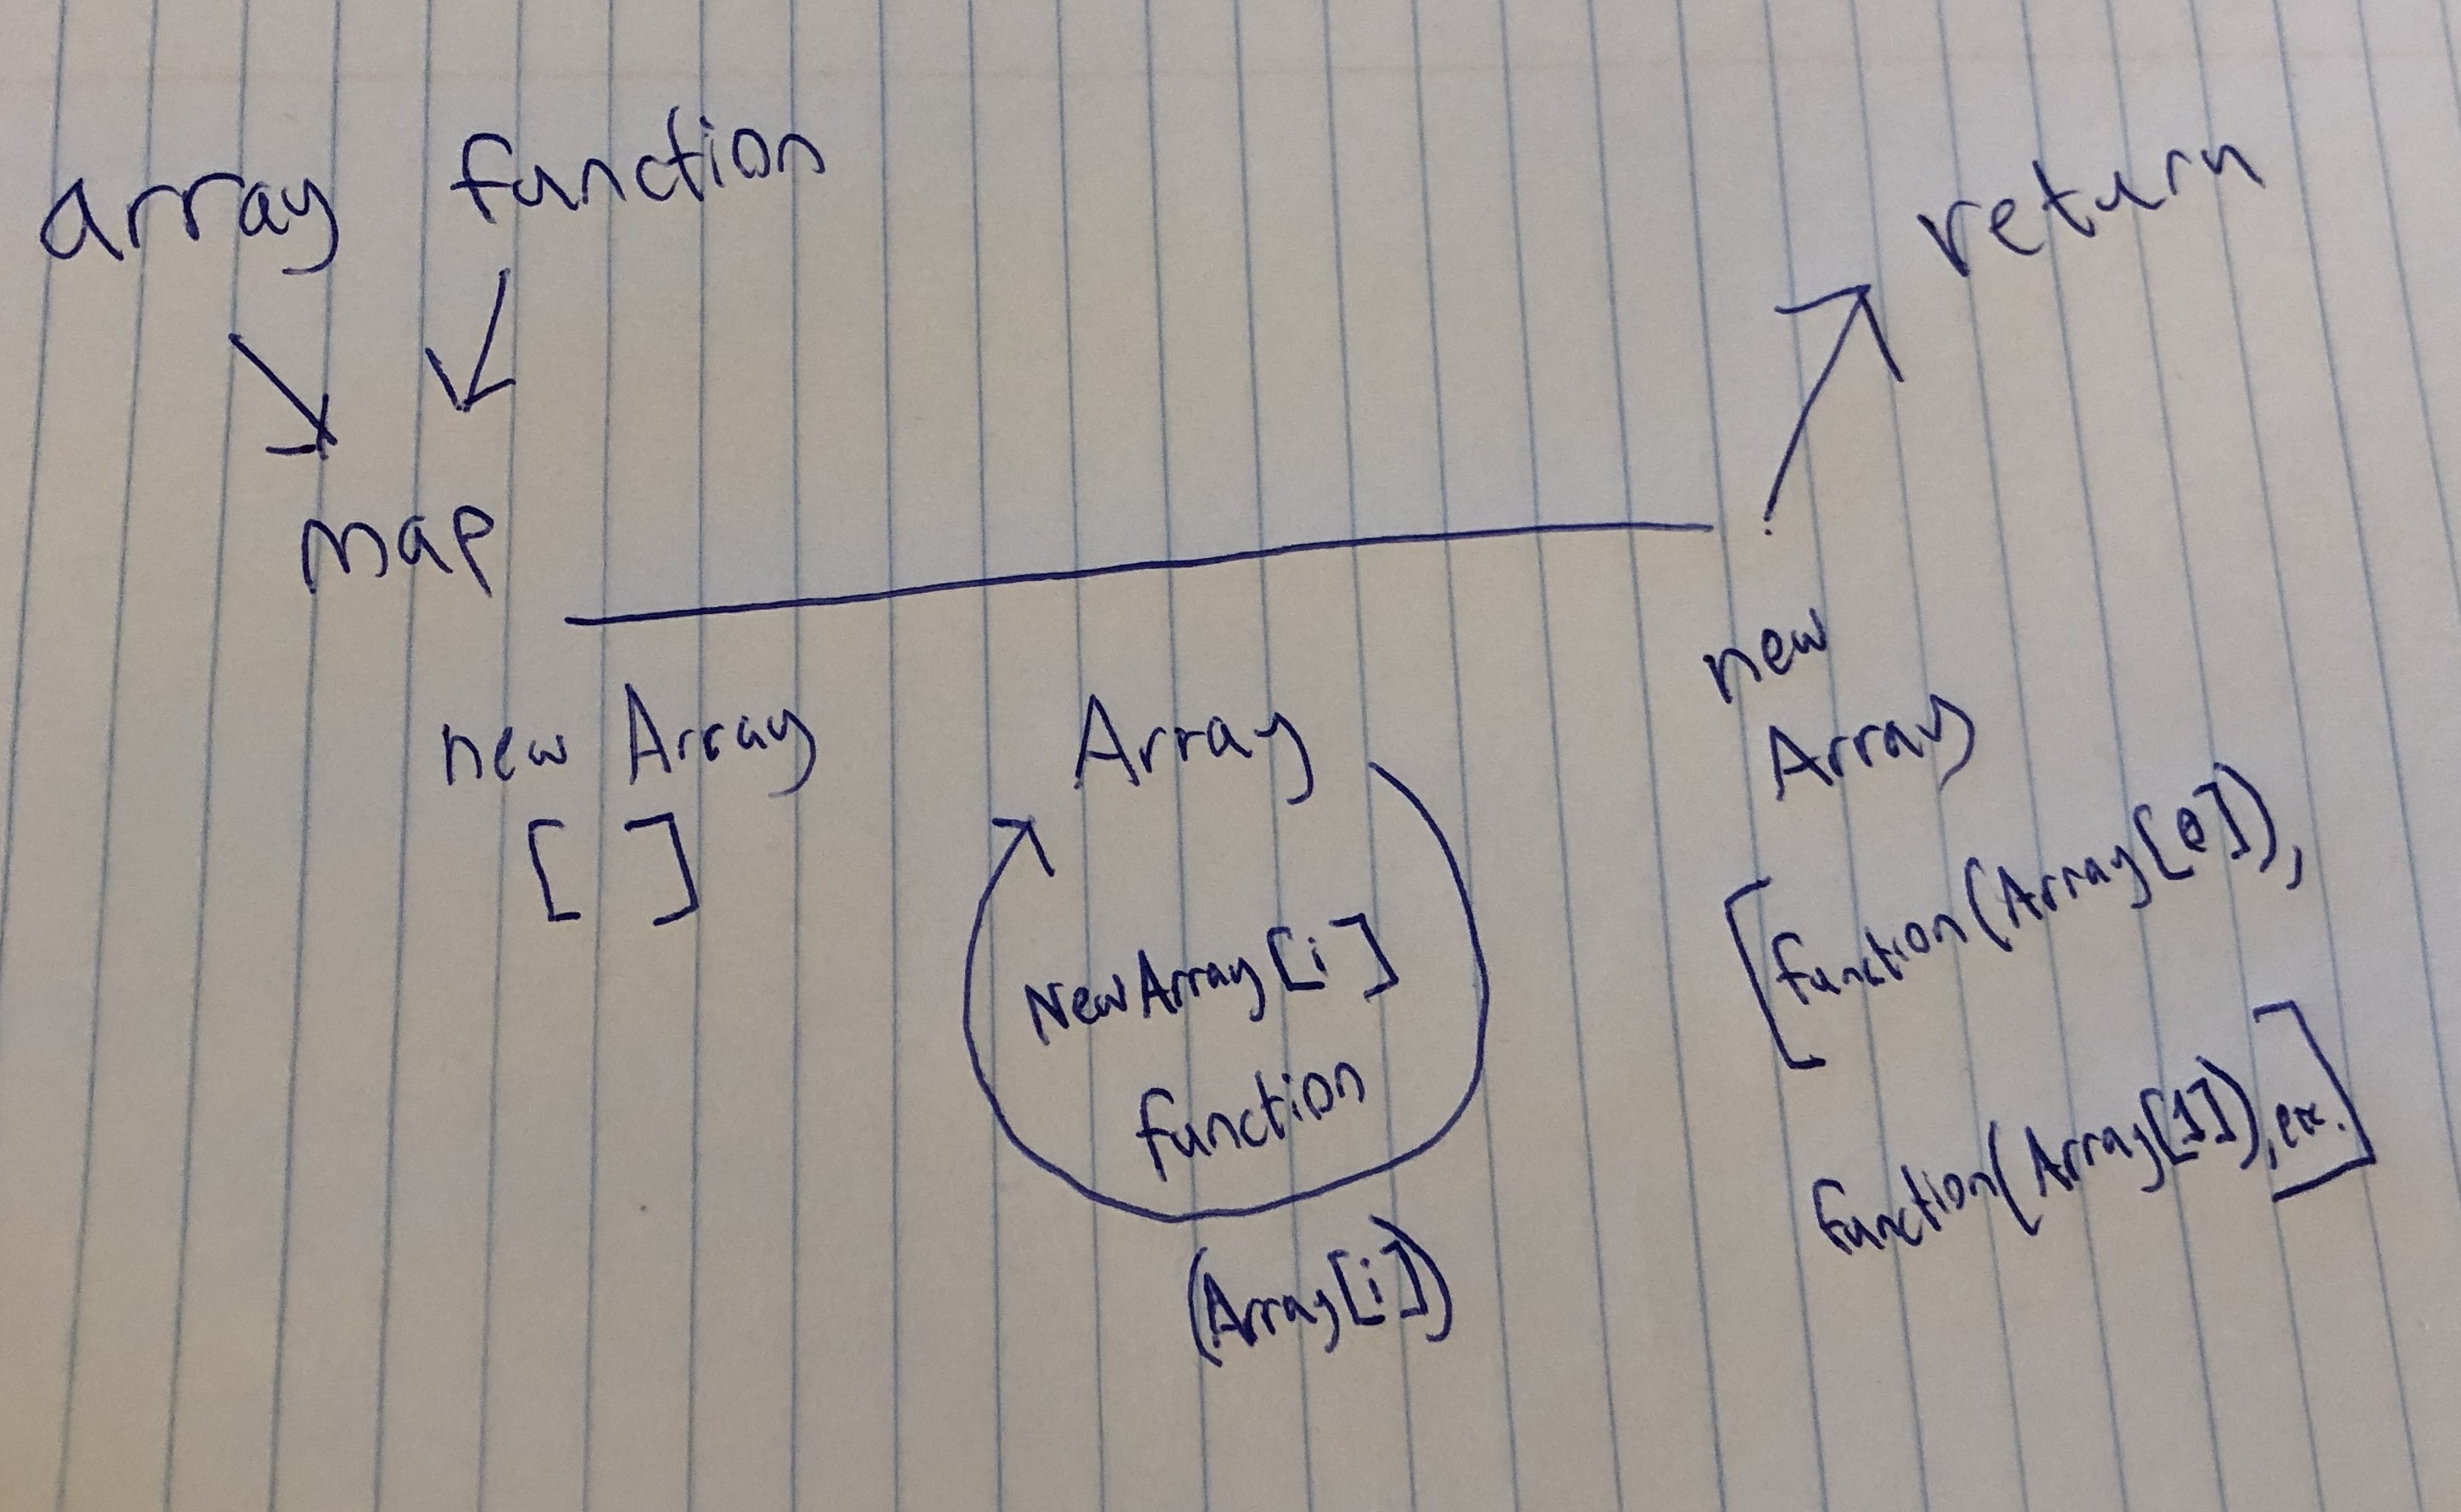 array function
return
map
new Array
[ ]
Array
NewArray[i]
function
(Array[i])
new
Array
[function(Array[0]),
function(Array[1]), etc.]